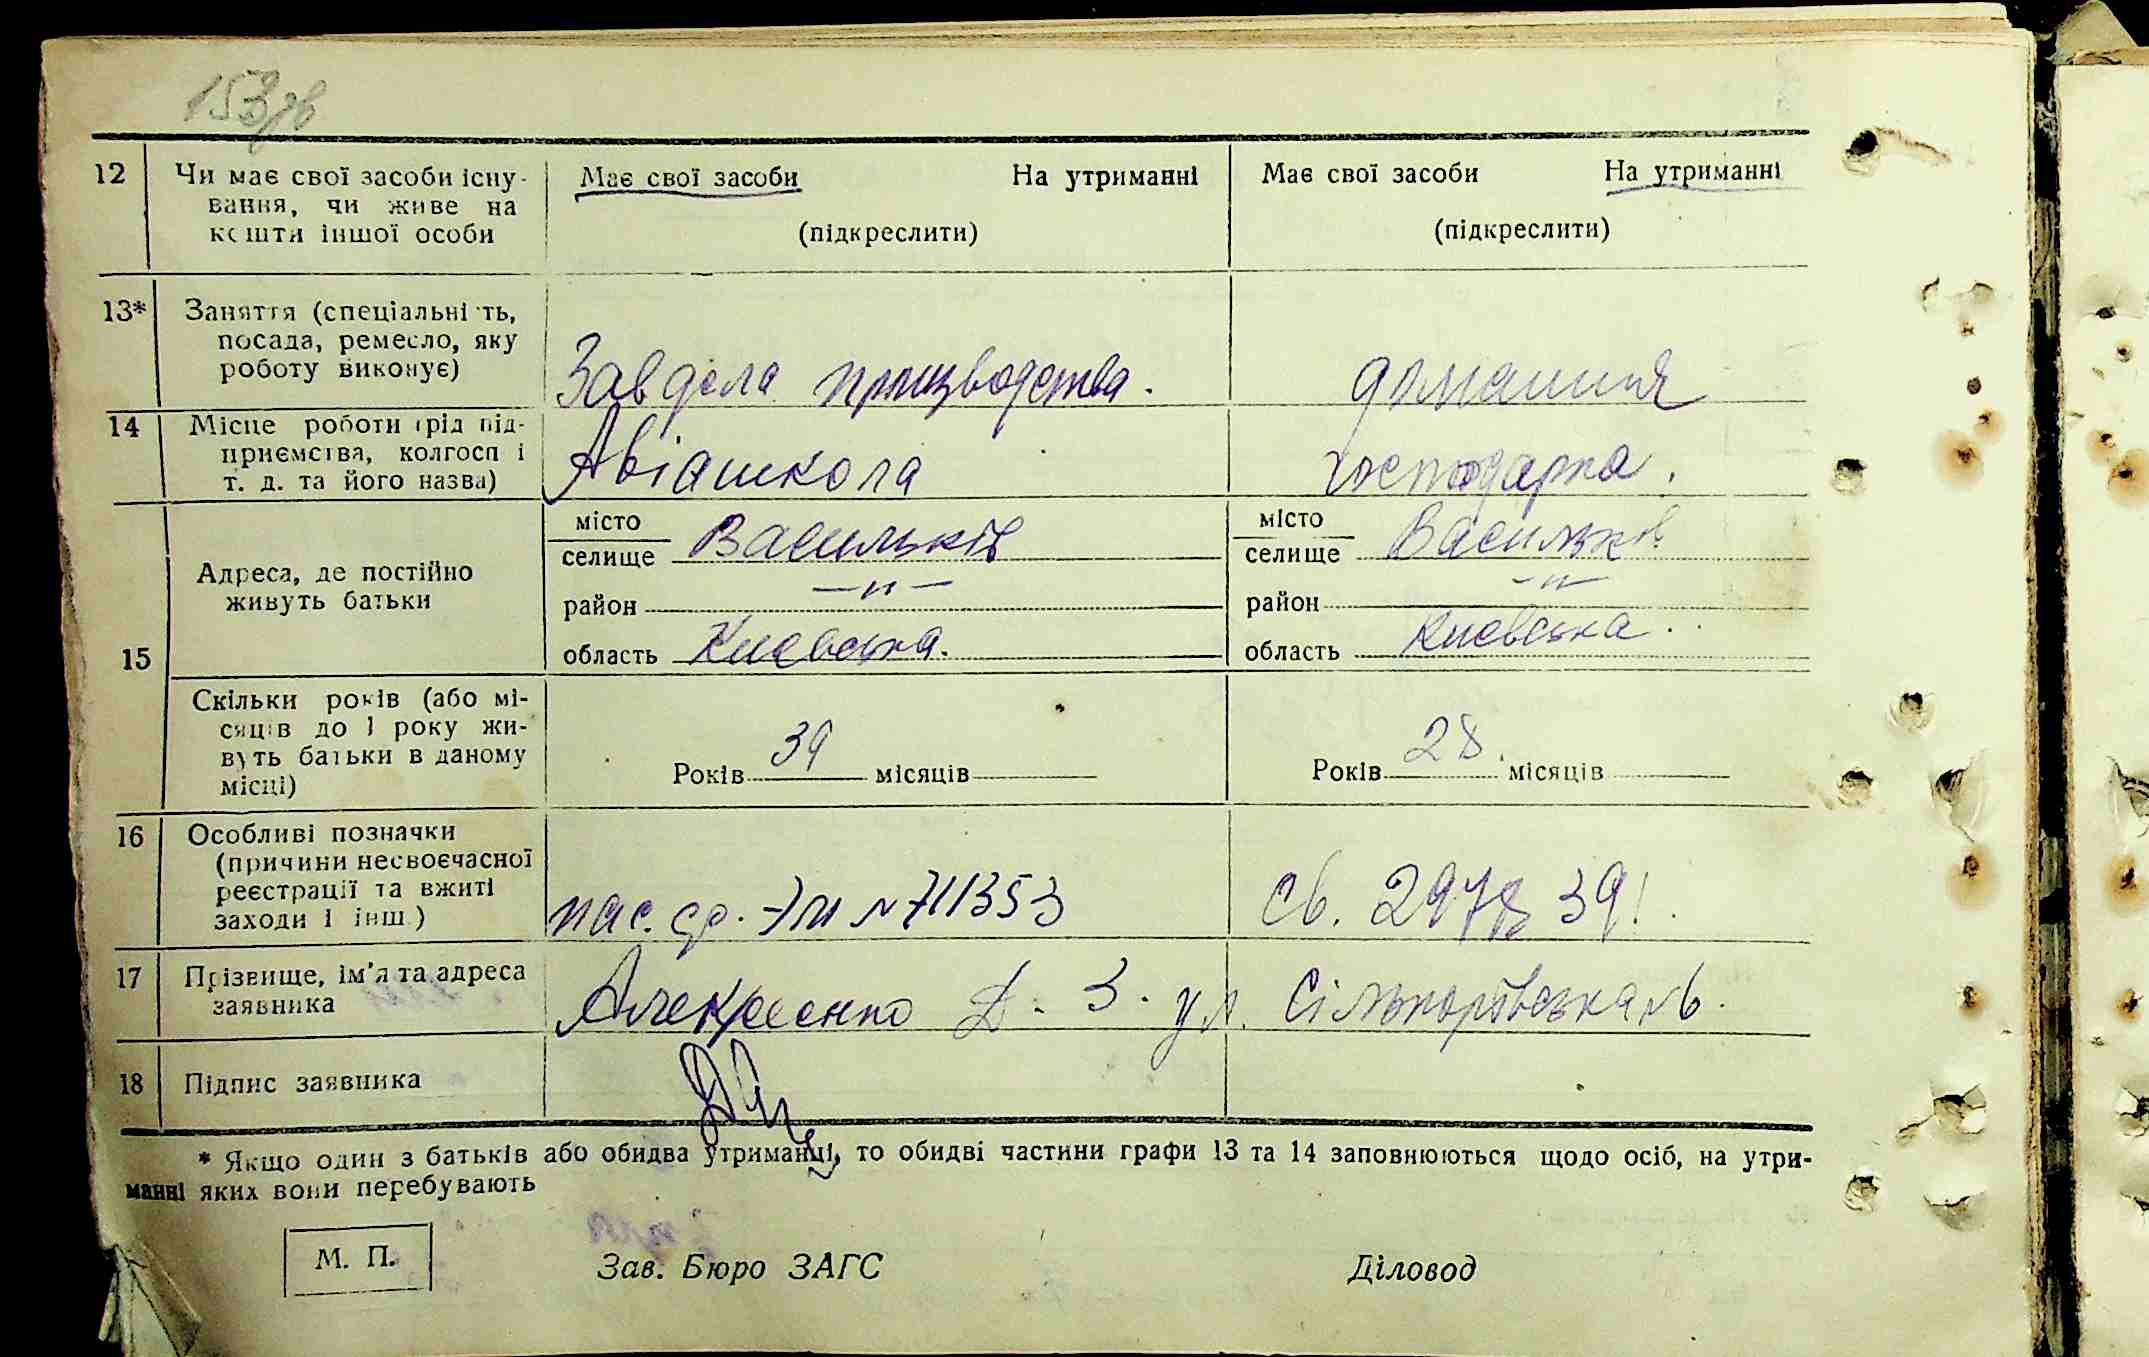 153зв
12 Чи має свої засоби існу- Має свої засоби На утриманні Має свої засоби На утриманні
вання, чи живе на
кошти іншої особи (підкреслити) (підкреслити)
13* Заняття (спеціальність,
посада, ремесло, яку
роботу виконує) Зав дела производства. домашня
14 Місце роботи (рід під-
приємства, колгосп і
т. д. та його назва) Авіашкола господарка.
15 Адреса, де постійно
живуть батьки
місто Васильків місто Васильків
селище селище
район —"— район —"—
область Киевська. область Киевська.
Скільки років (або мі-
сяців до 1 року жи-
вуть батьки в даному
місці)
Років 39 місяців Років 28 місяців
16 Особливі позначки
(причини несвоєчасної
реєстрації та вжиті
заходи і інш.) пас. № 711353 св. 39
17 Прізвище, ім'я та адреса
заявника Д. З. ул.
18 Підпис заявника
* Якщо один з батьків або обидва утриманці, то обидві частини графи 13 та 14 заповнюються щодо осіб, на утри-
манні яких вони перебувають
М. П. Зав. Бюро ЗАГС Діловод